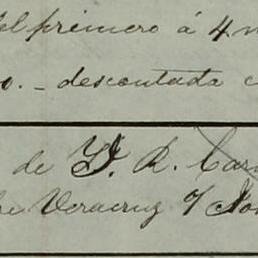 del primero á 4 m
o. _ descontada c
de Y. R. Car
Veracruz